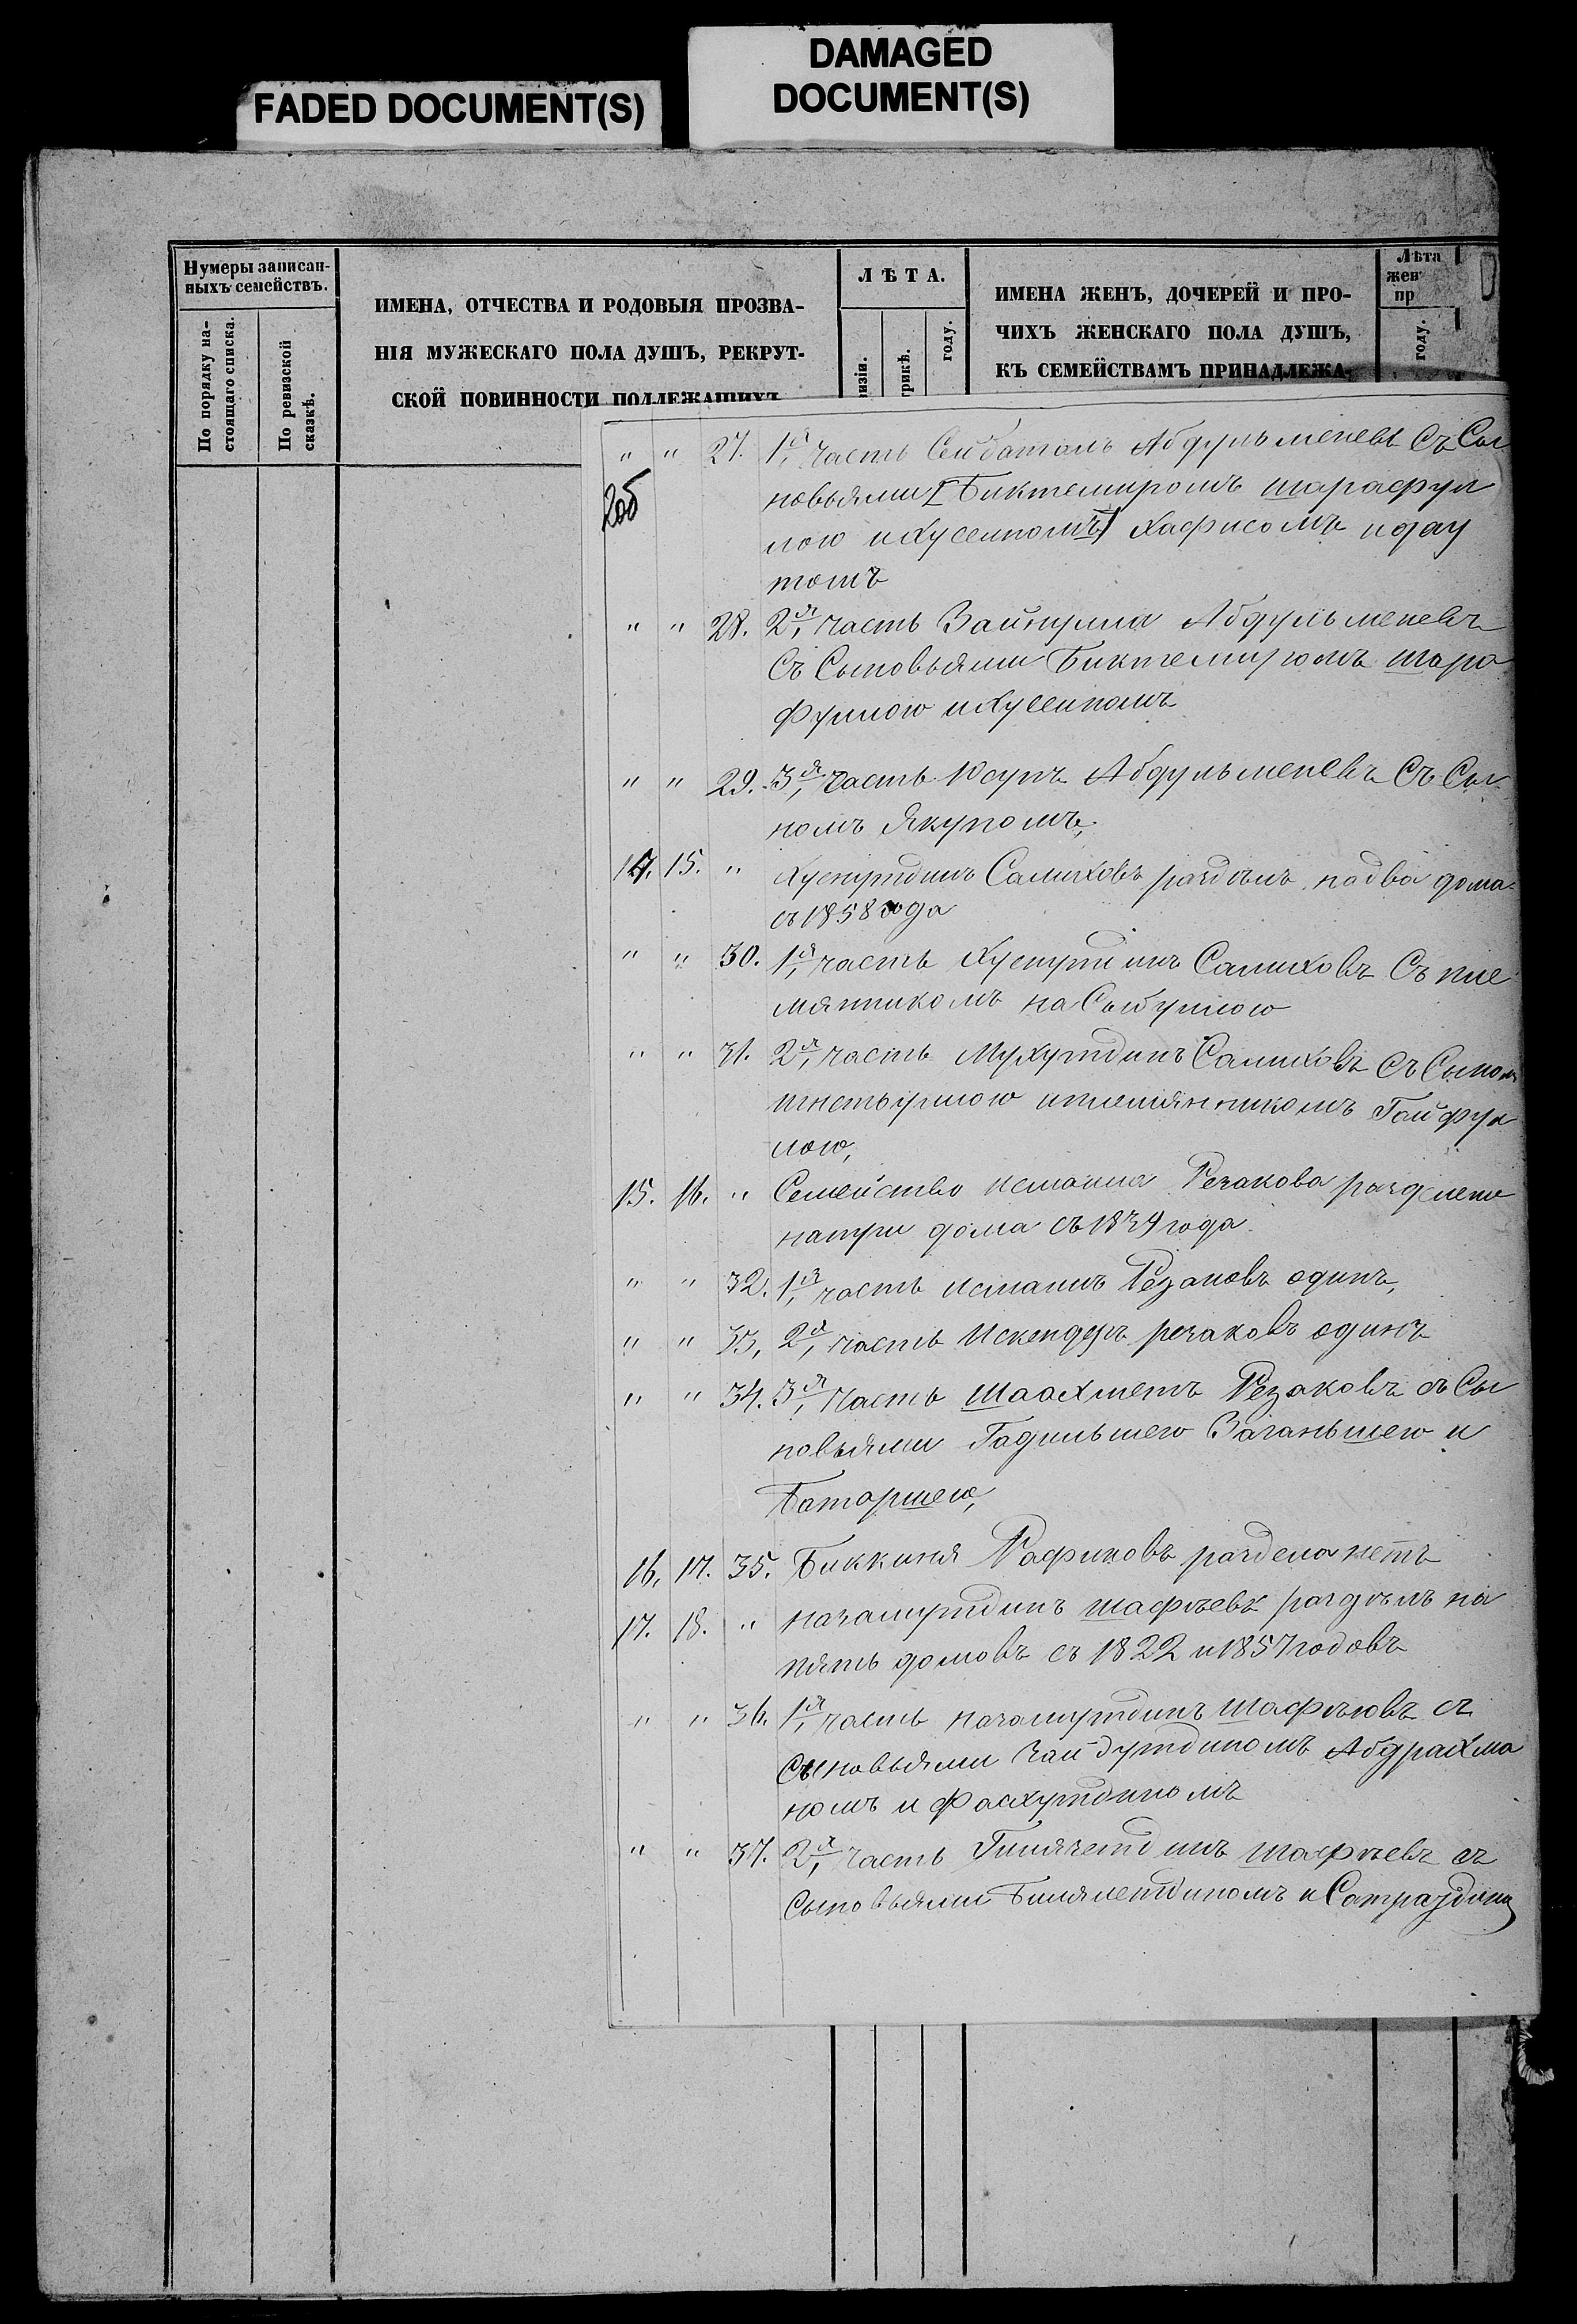 FADED DOCUMENT(S)
DAMAGED
DOCUMENT(S)
Нумеры записан-
ныхъ семействъ.
По порядку на-
стоящаго списка.
По ревизской
сказкѣ.
ИМЕНА, ОТЧЕСТВА И РОДОВЫЯ ПРОЗВА-
НІЯ МУЖЕСКАГО ПОЛА ДУШЪ, РЕКРУТ-
СКОЙ ПОВИННОСТИ ПОДЛЕЖАЩИХЪ
ЛѢТА.
изіи.
трикѣ.
году.
ИМЕНА ЖЕНЪ, ДОЧЕРЕЙ И ПРО-
ЧИХЪ ЖЕНСКАГО ПОЛА ДУШЪ,
КЪ СЕМЕЙСТВАМЪ ПРИНАДЛЕЖА-
Лѣта
жен
пр
году.
" " 27. 1я часть Сейбаталъ Абдульменевъ Съ Сы
новьями [Биктемиромъ шарафул
лою и Хусеиномъ] Хафисомъ и дау
томъ
" " 28. 2я часть Зайнулла Абдульменевъ
Съ Сыновьями Биктемиромъ шара
фуллою и Хусеиномъ
" " 29. 3я часть Юсупъ Абдульменевъ Съ Сы
номъ Якупомъ,
14. 15. " Хуснутдинъ Салиховъ раздѣлъ на два дома
съ 1858 года
" " 30. 1я часть Хуснутдинъ Салиховъ Съ пле
мянникомъ на Сыбуллою
" " 31. 2я часть Мухутдинъ Салиховъ Съ Сыномъ
племянникомъ Гайфул
лою,
15. 16. " Семейство исмаила Резакова разделено
на три дома съ 1839 года
" " 32. 1я часть исмаилъ Резаковъ одинъ,
" " 33, 2я часть Искендеръ резаковъ одинъ
" " 34. 3я часть шаахметъ Резаковъ съ Сы
новьями Гадильшею Заганьшею и
Батаршею,
16. 17. 35. Биккиня Рафиковъ раздела нетъ
17. 18. "назамутдинъ шафѣевъ раздѣлъ на
пять домовъ съ 1822 и 1857 годовъ
" " 36. 1я часть назамутдинъ шафѣевъ съ
Сыновьями Абдрахма
номъ и Фасхутдиномъ
" " 37. 2я часть Гилязетдинъ шафѣевъ съ
Сыновьями Билялетдиномъ и